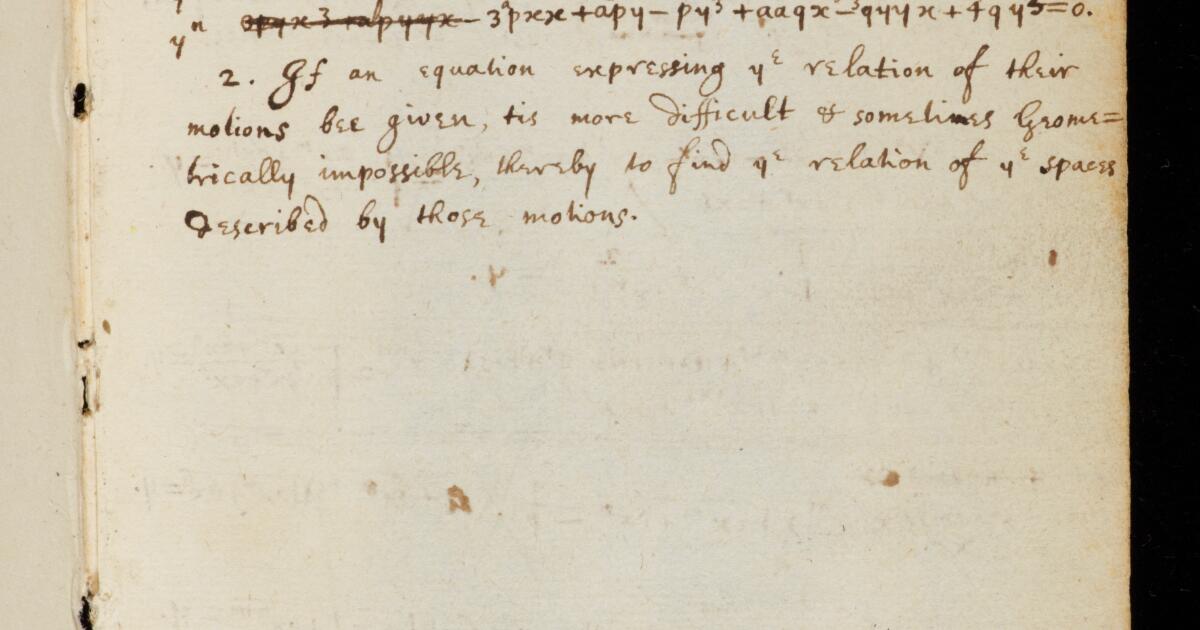 yⁿ ~~3pyx³+apyyx~~ - 3pxx + apy - py³ + aaqx - 3qyyx + 4qy³ = 0.
2. If an equation expressing yᵉ relation of their
motions bee given, tis more difficult & sometimes Geome=
trically impossible, thereby to find yᵉ relation of yᵉ spaces
described by those motions.